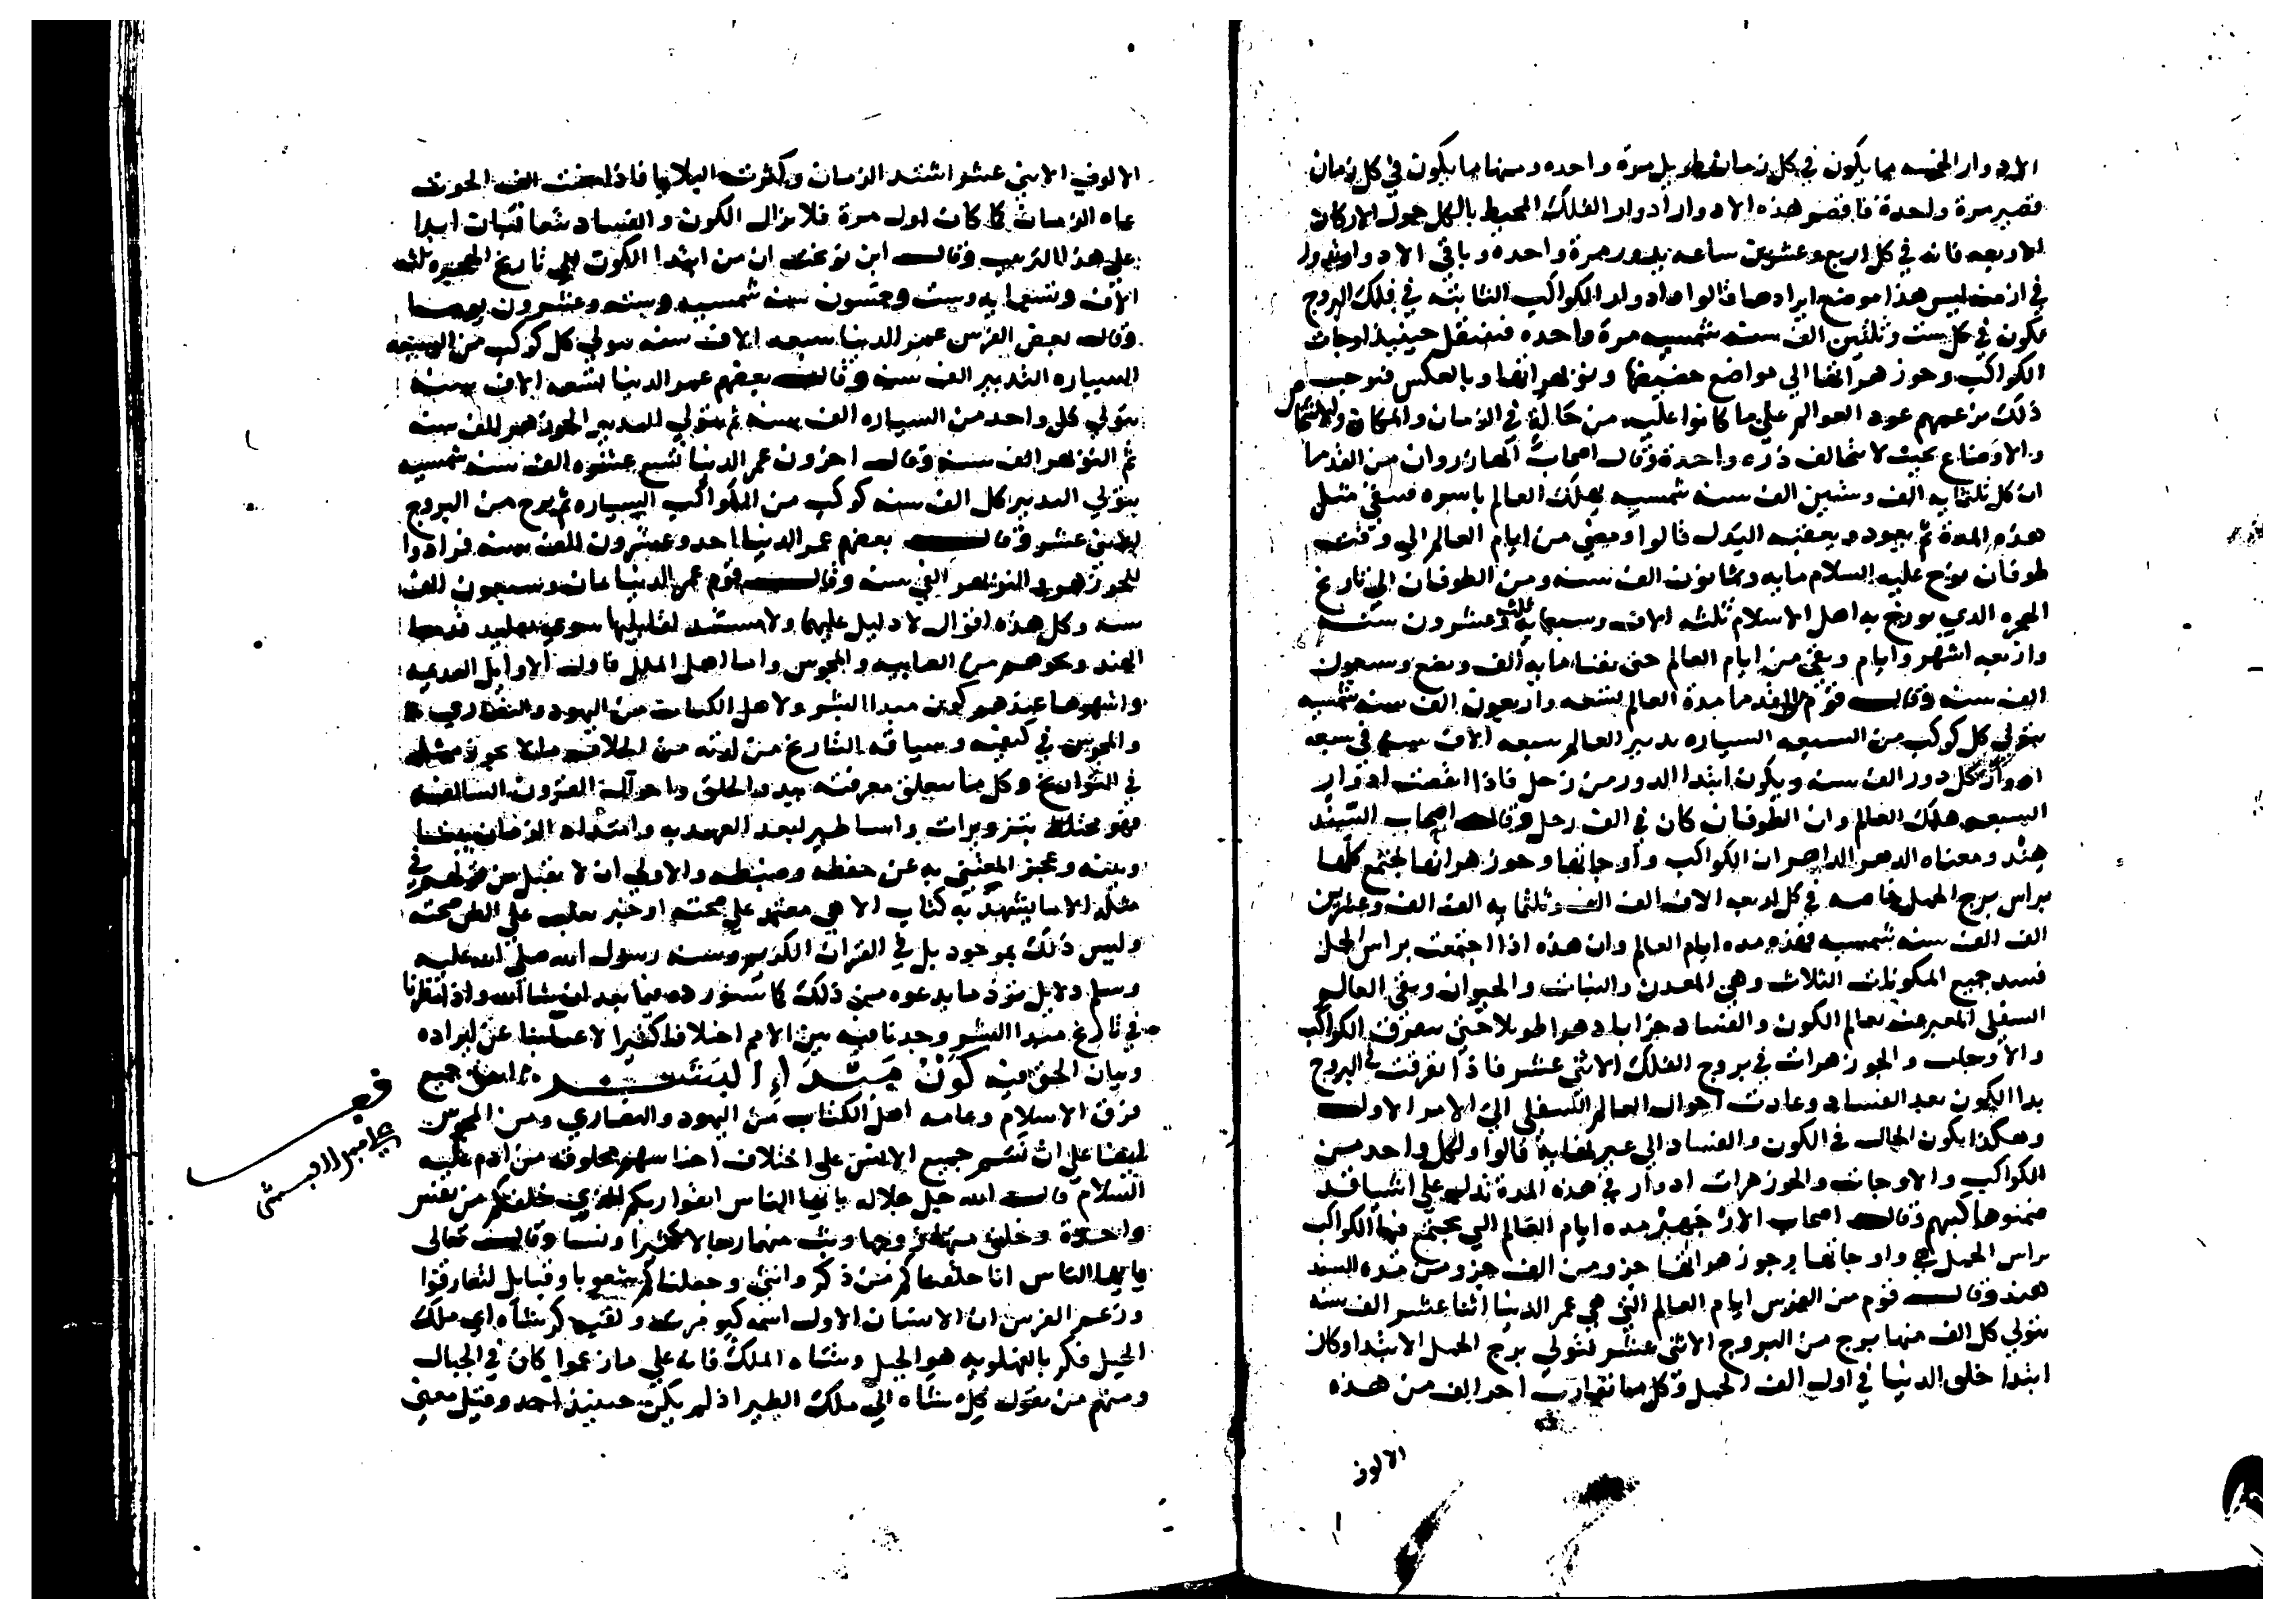 الادوار الخمسه ما يكون في كل زمان طويل مرة واحده ومنها ما يكون في كل زمان
قصير مرة واحدة فاقصر هذه الادوار ادوار الفلك المحيط بالكل حول الاركان
الاربعه فانه في كل اربع وعشرين ساعه يدور مرة واحده وباقي الادوار يدور
في ازمنه ليس هذا موضع ايرادها قالوا وادوار الكواكب الثابته في فلك البروج
يكون في كل ست وثلثين الف سنه شمسيه مرة واحده فتنتقل حينيذ اوجات
الكواكب وجوزهراتها الي مواضع حضيضها ونوبهراتها وبالعكس فتوجب
ذلك بزعمهم عود العوالم علي ما كانوا عليه من حاله في الزمان والمكان والاشخاص
والاوضاع بحيث لا تخالف ذره واحدة وقال اصحاب الهازروان من القدما
ان كل ثلثمايه الف وستين الف سنه شمسيه يهلك العالم باسره فيبقي مثل
هذه المدة ثم يعود ويعقبه البدل قالوا ومضي من ايام العالم الي وقت
طوفان نوح عليه السلام مايه وثمانون الف سنه ومن الطوفان الي تاريخ
الهجره الذي يورخ به اهل الاسلام ثلثه الاف وسبعمايه وعشرون سنه
واربعه اشهر وايام وبقي من ايام العالم حتي يفنا مايه الف وبضع وسبعون
الف سنه وقال قوم من القدما مدة العالم تسعه واربعون الف سنه شمسيه
يتولي كل كوكب من السبعه السياره تدبير العالم سبعه الاف سنه في سبعه
ادوار كل دور الف سنه ويكون ابتدا الدور من زحل فاذا انقضت ادوار
السبعه هلك العالم وان الطوفان كان في الف زحل وقال اصحاب السند
هند ومعناه الدهر الداهر ان الكواكب واوجاتها وجوزهراتها تجتمع كلها
براس برج الحمل خاصه في كل اربعه الاف الف الف وثلثمايه الف الف وعشرين
الف الف سنه شمسيه فهذه مده ايام العالم وان هذه اذا اجتمعت براس الحمل
فسد جميع المكونات الثلاث وهي المعدن والنبات والحيوان وبقي العالم
السفلي المعبر عنه بعالم الكون والفساد خرابا دهرا طويلا حتي تتفرق الكواكب
والاوجات والجوزهرات في بروج الفلك الاثني عشر فاذا تفرقت في البروج
بدا الكون بعد الفساد وعادت احوال العالم السفلي الي الامر الاول
وهكذا يكون الحال في الكون والفساد الي غير نهاية قالوا ولكل واحد من
الكواكب والاوجات والجوزهرات ادوار في هذه المدة تدل علي اشيا قد
ضمنوها كتبهم وقال اصحاب الارجبهر مده ايام العالم التي تجتمع فيها الكواكب
براس الحمل هي واوجاتها وجوزهراتها جزو من الف جزو من مده السند
هند وقال قوم من الفرس ايام العالم التي هي عمر الدنيا اثنا عشر الف سنه
يتولي كل الف منها برج من البروج الاثني عشر فتولي برج الحمل الابتدا وكان
ابتدا خلق الدنيا في اول الف الحمل وكل ما تقارب اخر الف من هذه
الالوف
الالوف الاثني عشر اشتد الزمان وكثرت البلايا فاذا مضت الف الحوت
عاد الزمان كما كان اول مرة فلا يزال الكون والفساد يتعاقبان ابدا
علي هذا الترتيب وقال ابن نوبخت ان من ابتدا الكون الي تاريخ الهجره ثلثه
الاف وتسعمايه وست وخمسون سنه شمسيه وسته وعشرون يوما
وقال بعض الفرس عمر الدنيا سبعه الاف سنه يتولي كل كوكب من السبعه
السياره التدبير الف سنه وقال بعضهم عمر الدنيا تسعه الاف سنه
يتولي كل واحد من السياره الف سنه ثم يتولي التدبير الجوزهر الف سنه
ثم النوبهر الف سنه وقال اخرون عمر الدنيا تسع عشره الف سنه شمسيه
يتولي التدبير كل الف سنه كوكب من الكواكب السياره ثم برج من البروج
الاثني عشر وقال بعضهم عمر الدنيا احد وعشرون الف سنه فزادوا
للجوزهر والنوبهر الفي سنه وقال قوم عمر الدنيا ثمان وسبعون الف
سنه وكل هذه اقوال لا دليل عليها ولا مستند لقايليها سوي تقليد قدما
الهند ونحوهم من الصابيه والمجوس واما اهل الملل فاول الاوايل القديمه
واشهرها عندهم كون مبدا البشر ولاهل الكتاب من اليهود والنصاري
والمجوس في كيفيته وسياقه التاريخ من لدنه من الخلاف ما لا يجوز مثله
في التواريخ وكل ما يتعلق معرفته ببدو الخلق واحوال القرون السالفه
فهو مختلط بتزويرات واساطير لبعد العهد به وامتداد الزمان بيننا
وبينه وعجز المعتني به عن حفظه وضبطه والاولي ان لا يقبل من قولهم في
مثله الا ما يشهد به كتاب الاهي معتمد علي صحته او خبر يغلب علي الظن صحته
وليس ذلك بموجود بل في القران الكريم وسنه رسول الله صلي الله عليه
وسلم دلايل ترد ما يدعوه من ذلك كما سنورده فيما بعد ان شا الله واذا نظرنا
في تاريخ مبدا البشر وجدنا فيه بين الامم اختلافا كثيرا لا غنا بنا عن ايراده
وبيان الحق فيه كون مبتداء البشر اتفق جميع
فرق الاسلام وعامه اهل الكتاب من اليهود والنصاري ومن المجوس
ايضا علي ان نسم جميع الانس علي اختلاف اجناسهم مخلوقه من ادم عليه
السلام قال الله جل جلاله يايها الناس اتقوا ربكم الذي خلقكم من نفس
واحدة وخلق منها زوجها وبث منهما رجالا كثيرا ونسا وقال تعالي
يايها الناس انا خلقناكم من ذكر وانثي وجعلناكم شعوبا وقبايل لتعارفوا
وزعم الفرس ان الانسان الاول اسمه كيومرث ولقبه كرشاه اي ملك
الجبل فكر بالفهلويه هو الجبل وشاه الملك فانه علي ما زعموا كان في الجبال
ومنهم من يقول كل شاه اي ملك الطين اذ لم يكن حينيذ احد وقيل معني